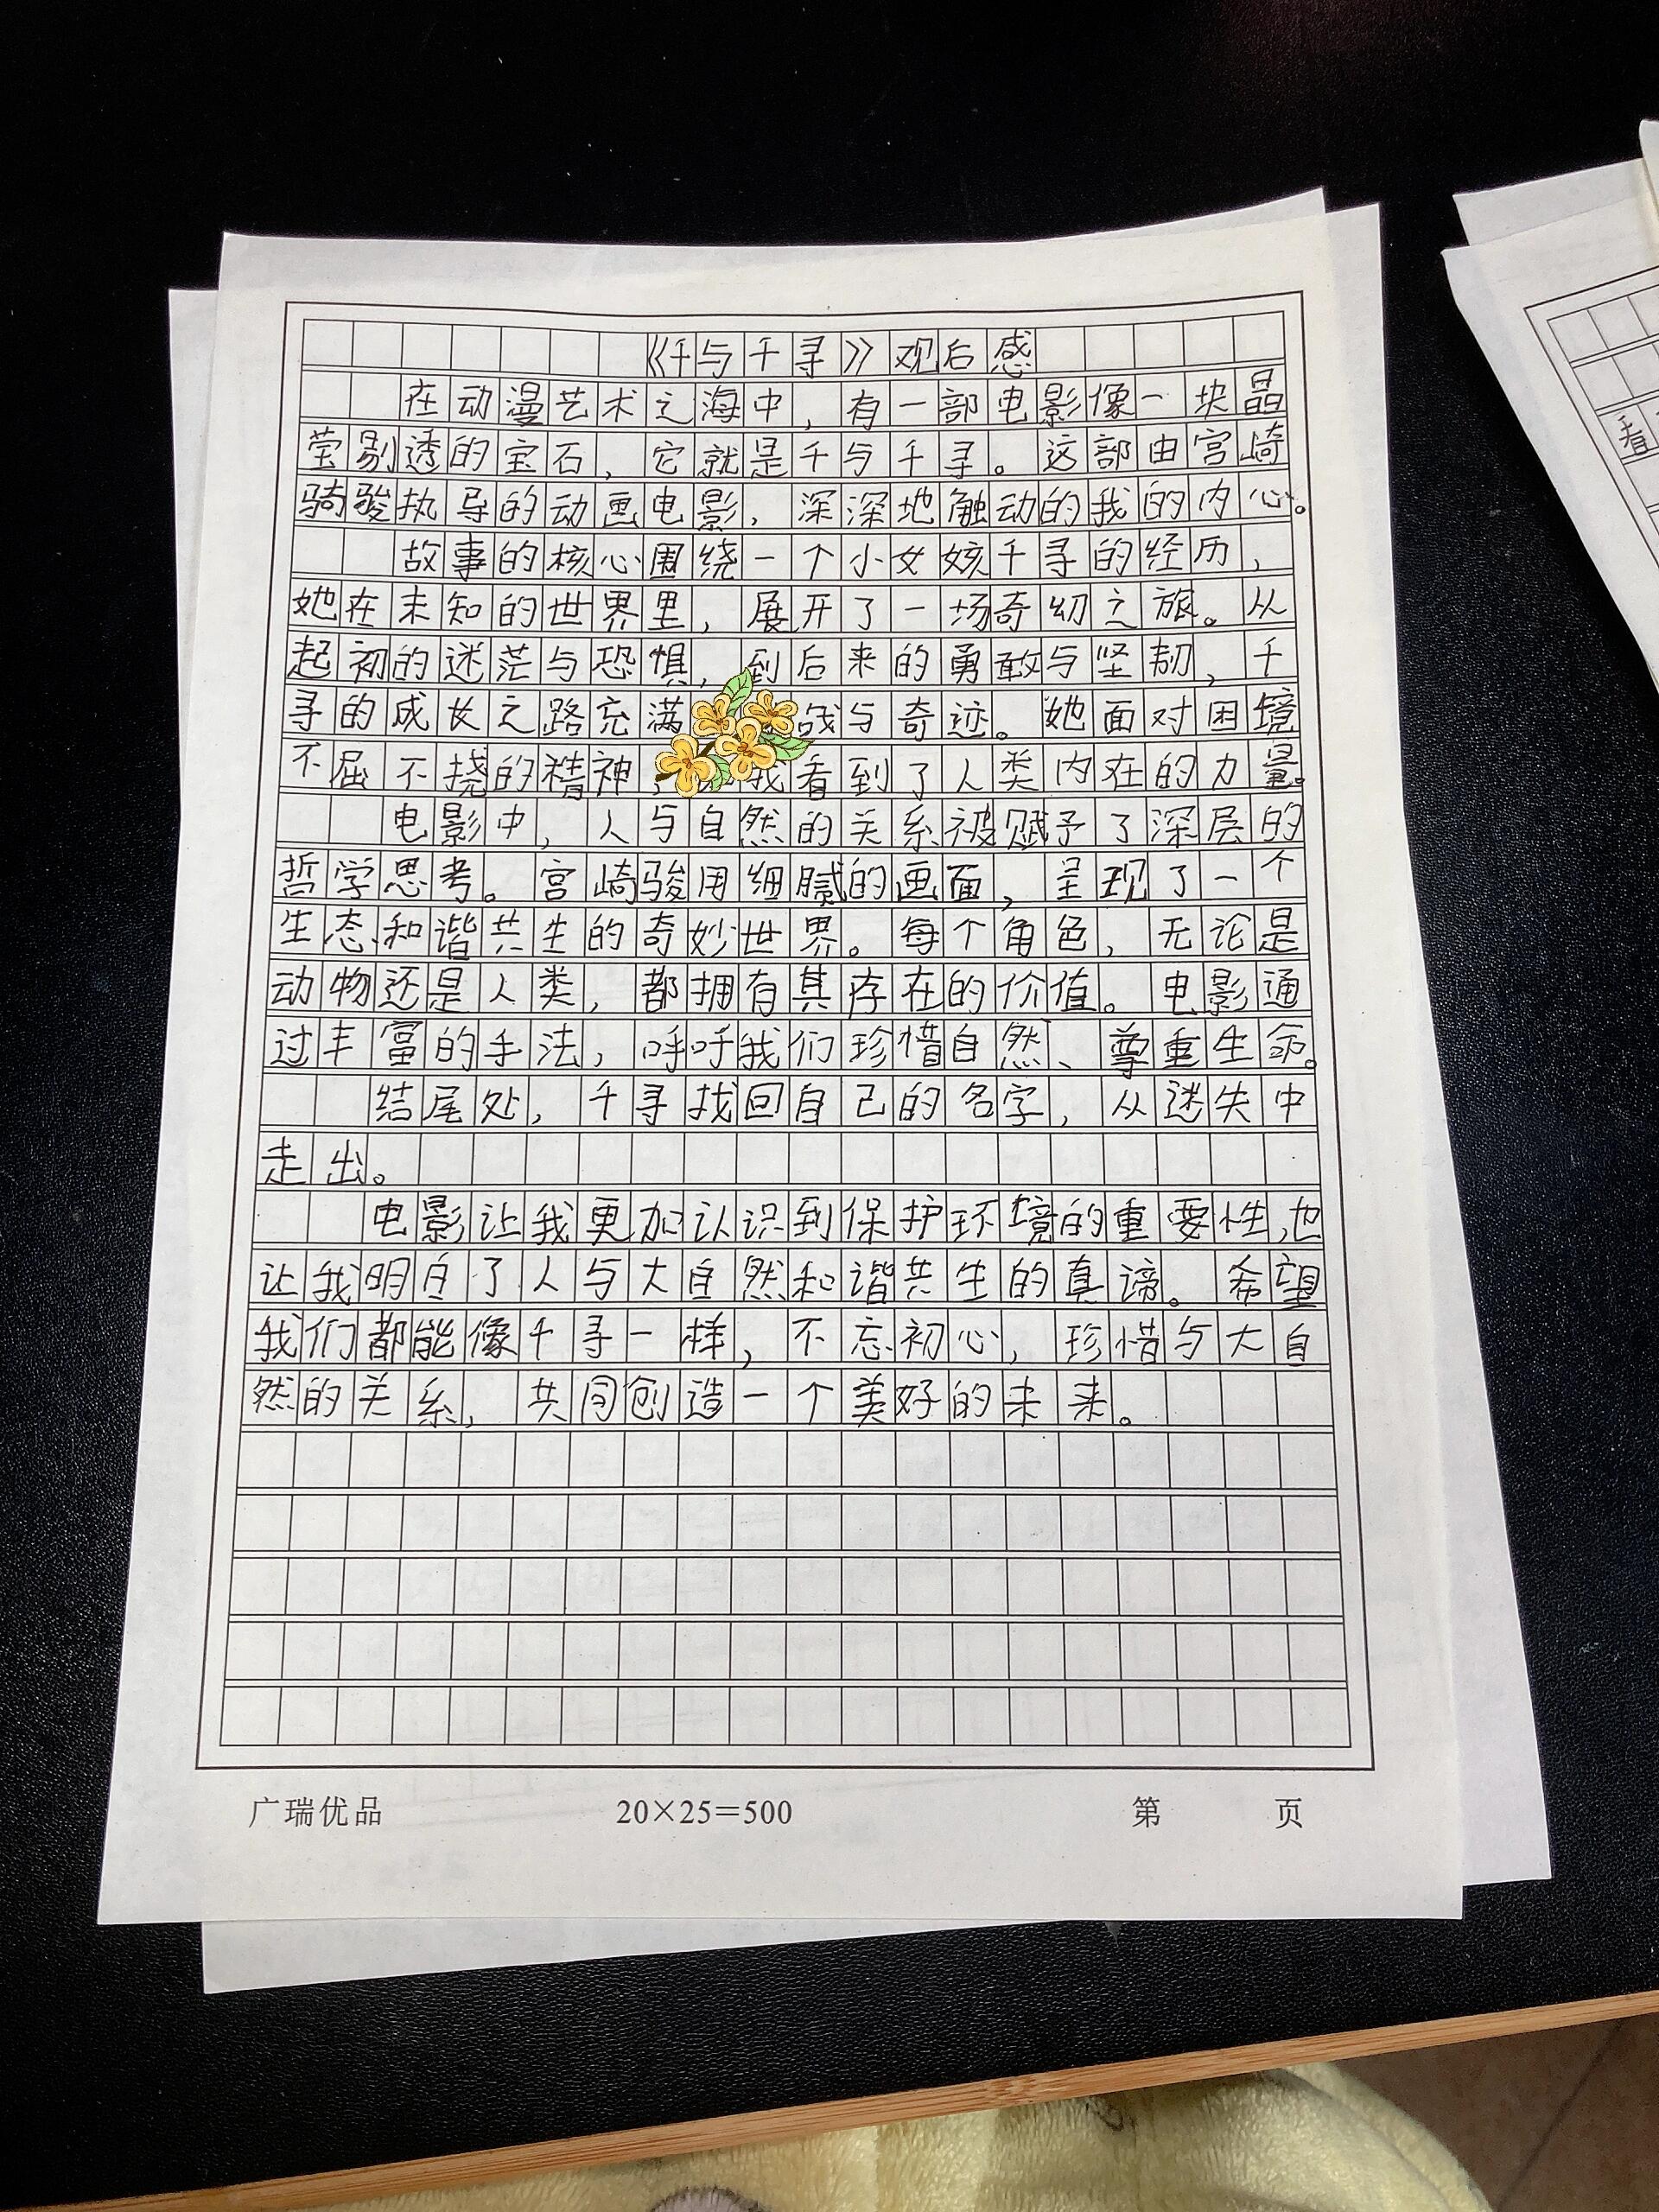 《千与千寻》观后感
在动漫艺术之海中，有一部电影像一块晶
莹剔透的宝石，它就是千与千寻。这部由宫崎
骑骏执导的动画电影，深深地触动的我的内心。
故事的核心围绕一个小女孩千寻的经历，
她在未知的世界里，展开了一场奇幻之旅。从
起初的迷茫与恐惧，到后来的勇敢与坚韧，千
寻的成长之路充满 与奇迹。她面对困境
不屈不挠的精神， 我看到了人类内在的力量。
电影中，人与自然的关系被赋予了深层的
哲学思考。宫崎骏用细腻的画面，呈现了一个
生态和谐共生的奇妙世界。每个角色，无论是
动物还是人类，都拥有其存在的价值。电影通
过丰富的手法，呼呼我们珍惜自然、尊重生命。
结尾处，千寻找回自己的名字，从迷失中
走出。
电影让我更加认识到保护环境的重要性，也
让我明白了人与大自然和谐共生的真谛。希望
我们都能像千寻一样，不忘初心，珍惜与大自
然的关系，共同创造一个美好的未来。
广瑞优品 20×25=500 第 页
看